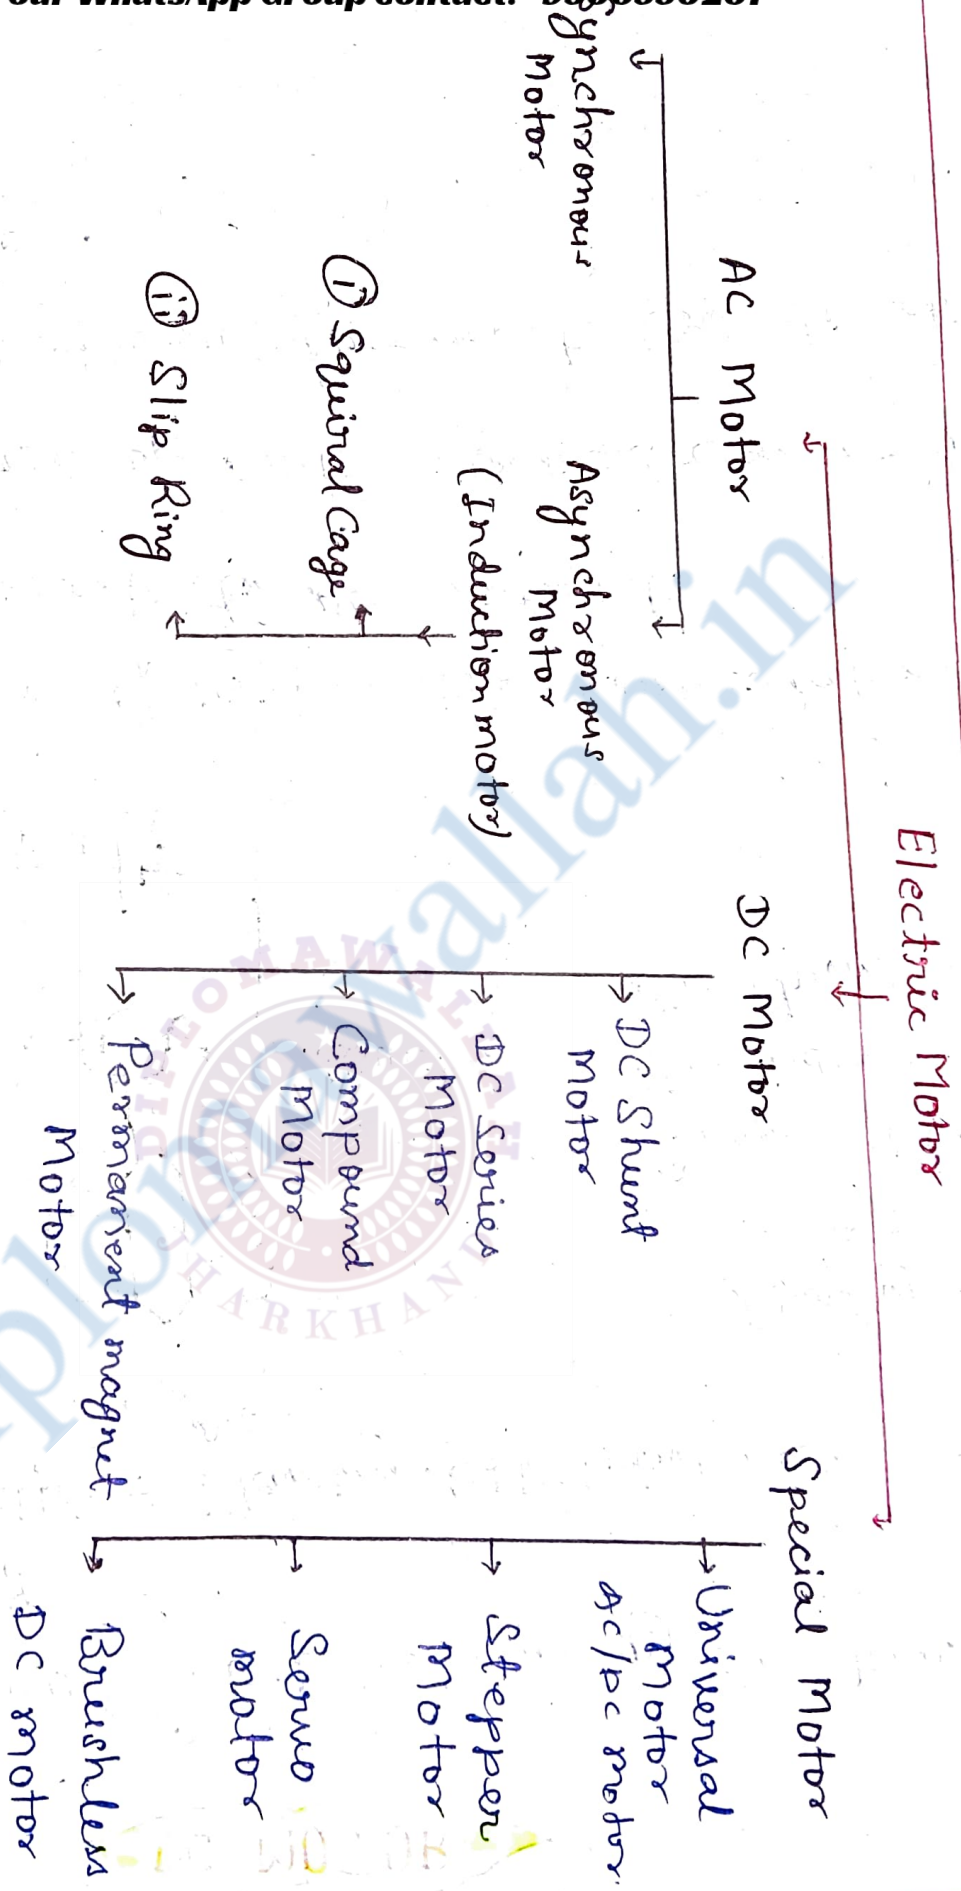 Electric Motor
AC Motor
DC Motor
Special Motor
Synchronous
Motor
Asynchronous
Motor
(Induction motor)
(i) Squiral Cage
(ii) Slip Ring
DC Shunt
Motor
DC Series
Motor
Compound
Motor
Permanent magnet
Motor
Universal
Motor
AC/DC motor
Stepper
Motor
Servo
motor
Brushless
DC motor
plomawallah.in
DIPLOMA WALLAH
JHARKHAND